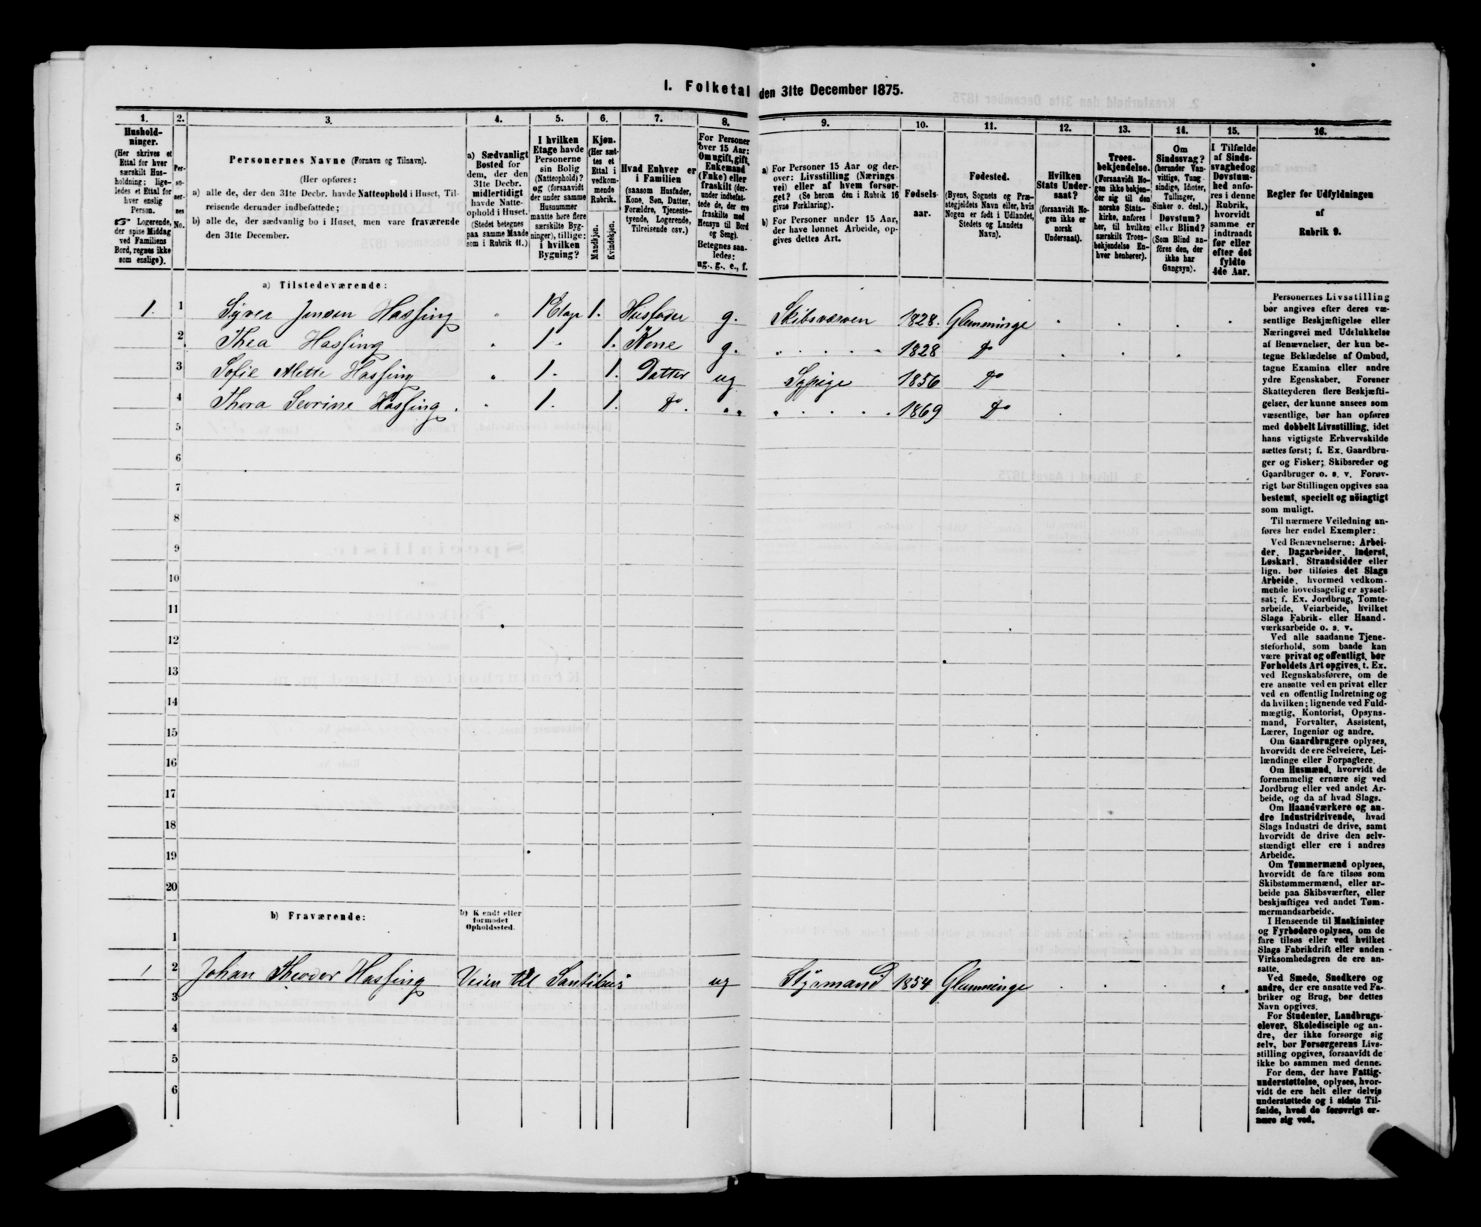 I. Folketal den 31te December 1875.
1. 2. 3. 4. 5. 6. 7. 8. 9. 10. 11. 12. 13. 14. 15. 16.
Hushold-
ninger.
(Her skrives et
Ettal for hver
særskilt Hus-
holdning; lige-
ledes et Ettal for
hver enslig
Person.
☞ Logerende,
der spise Middag
ved Familiens
Bord, regnes ikke
som enslige).
Per-
so-
ner-
nes
No.
Personernes Navne (Fornavn og Tilnavn).
(Her opføres:
a) alle de, der den 31te Decbr. havde Natteophold i Huset, Til-
reisende derunder indbefattede;
b) alle de, der sædvanlig bo i Huset, men vare fraværende
den 31te December.
a) Sædvanligt
Bosted for
dem, der den
31te Decbr.
midlertidigt
havde Natte-
ophold i Huset.
(Stedet betegnes
paa samme Maade
som i Rubrik 11.)
I hvilken
Etage havde
Personerne
sin Bolig
(Natteophold)?
og (forsaavidt
der under samme
Husnummer
maatte høre flere
særskilte Byg-
ninger), tillige:
i hvilken
Bygning?
Kjøn.
(Her sæt-
tes et
Ettal i
vedkom-
mende
Rubrik.
Mandkjøn.
Kvindekjøn.
Hvad Enhver er
i Familien
(saasom Husfader,
Kone, Søn, Datter,
Forældre, Tjeneste-
tyende, Logerende,
Tilreisende osv.)
For Personer
over 15 Aar:
Om ugift, gift,
Enkemand
(Enke) eller
fraskilt (der-
under indbefat-
tede de, der ere
fraskilte med
Hensyn til Bord
og Seng).
Betegnes saa-
ledes:
ug., g., e., f.
a) For Personer 15 Aar og der-
over: Livsstilling (Nærings-
vei) eller af hvem forsør-
get? (Se herom den i Rubrik 16
givne Forklaring).
b) For Personer under 15 Aar,
der have lønnet Arbeide, op-
gives dettes Art.
Fødsels-
aar.
Fødested.
(Byens, Sognets og Præ-
stegjeldets Navn eller, hvis
Nogen er født i Udlandet,
Stedets og Landets
Navn).
Hvilken
Stats Under-
saat?
(forsaavidt No-
gen ikke er
norsk
Undersaat).
Troes-
bekjendelse.
(Forsaavidt No-
gen ikke bekjen-
der sig til den
norske Stats-
kirke, anføres
her, til hvilken
særskilt Troes-
bekjendelse En-
hver henhører).
Om
Sindssvag?
(herunder Van-
vittige, Tung-
sindige, Idioter,
Tullinger,
Sinker o. desl.)
Døvstum?
eller Blind?
(Som Blind an-
føres den, der
ikke har
Gangsyn).
I Tilfælde
af Sinds-
svaghed og
Døvstum-
hed anfø-
res i denne
Rubrik,
hvorvidt
samme er
indtraadt
før eller
efter det
fyldte
4de Aar.
Regler for Udfyldningen
af
Rubrik 9.
a) Tilstedeværende:
1. 1 Syver Jensen Hassing 1 Etage 1. Husfader g. Skibsværven 1828. Glemminge
2 Thea Hassing 1 1. Kone g. 1828 Do
3 Sofie Mette Hassing 1. 1. Datter ug Sypige 1856 Do
4 Thora Severine Hassing. 1. 1. Do. 1869 Do
5
6
7
8
9
10
11
12
13
14
15
16
17
18
19
20
b) Fraværende:
b) Kjendt eller
formodet
Opholdssted.
1
1 2 Johan Theodor Hassing Veien til Santibus ug Styrmand 1854 Glemminge
3
4
5
6
Personernes Livsstilling
bør angives efter deres væ-
sentlige Beskjæftigelse eller
Næringsvei med Udelukkelse
af Benævnelser, der kun be-
tegne Beklædelse af Ombud,
tagne Examina eller andre
ydre Egenskaber. Forener
Skatteyderen flere Beskjæfti-
gelser, der kunne ansees som
væsentlige, bør han opføres
med dobbelt Livsstilling, idet
hans vigtigste Erhvervskilde
sættes først; f. Ex. Gaardbru-
ger og Fisker; Skibsreder og
Gaardbruger o. s. v. Forøv-
rigt bør Stillingen opgives saa
bestemt, specielt og nöiagtigt
som muligt.
Til nærmere Veiledning an-
føres her endel Exempler:
Ved Benævnelserne: Arbei-
der, Dagarbeider, Inderst,
Løskarl, Strandsidder eller
lign. bør tilføies det Slags
Arbeide, hvormed vedkom-
mende hovedsagelig er syssel-
sat; f. Ex. Jordbrug, Tomte-
arbeide, Veiarbeide, hvilket
Slags Fabrik- eller Haand-
værksarbeide o. s. v.
Ved alle saadanne Tjene-
steforhold, som baade kan
være privat og offentligt, bør
Forholdets Art opgives, t. Ex.
ved Regnskabsførere, om de
ere ansatte ved en privat eller
ved en offentlig Indretning og
da hvilken; lignende ved Fuld-
mægtig, Kontorist, Opsyns-
mand, Forvalter, Assistent,
Lærer, Ingeniør og andre.
Om Gaardbrugere oplyses,
hvorvidt de ere Selveiere, Lei-
lændinge eller Forpagtere.
Om Husmænd, hvorvidt de
fornemmelig ernære sig ved
Jordbrug eller ved andet Ar-
beide, og da af hvad Slags.
Om Haandværkere og an-
dre Industridrivende, hvad
Slags Industri de drive, samt
hvorvidt de drive den selv-
stændigt eller ere i andres
Arbeide.
Om Tømmermænd oplyses,
hvorvidt de fare tilsøs som
Skibstømmermænd, eller ar-
beide paa Skibsværfter, eller
beskjæftiges ved andet Tøm-
mermandsarbeide.
I Henseende til Maskinister
og Fyrbødere oplyses, om de
fare tilsøs eller ved hvilket
Slags Fabrikdrift eller anden
Virksomhedsgren de ere an-
satte.
Ved Smede, Snedkere og
andre, der ere ansatte ved Fa-
briker og Brug, bør dettes
Navn opgives.
For Studenter, Landbrugs-
elever, Skoledisciple og an-
dre, der ikke forsørge sig
selv, bør Forsørgerens Livs-
stilling opgives, forsaavidt de
ikke bo sammen med denne.
For dem, der have Fattig-
understøttelse, oplyses, hvor-
vidt de ere helt eller delvis
understøttede og i sidste Til-
fælde, hvad de forøvrigt er-
nære sig ved.